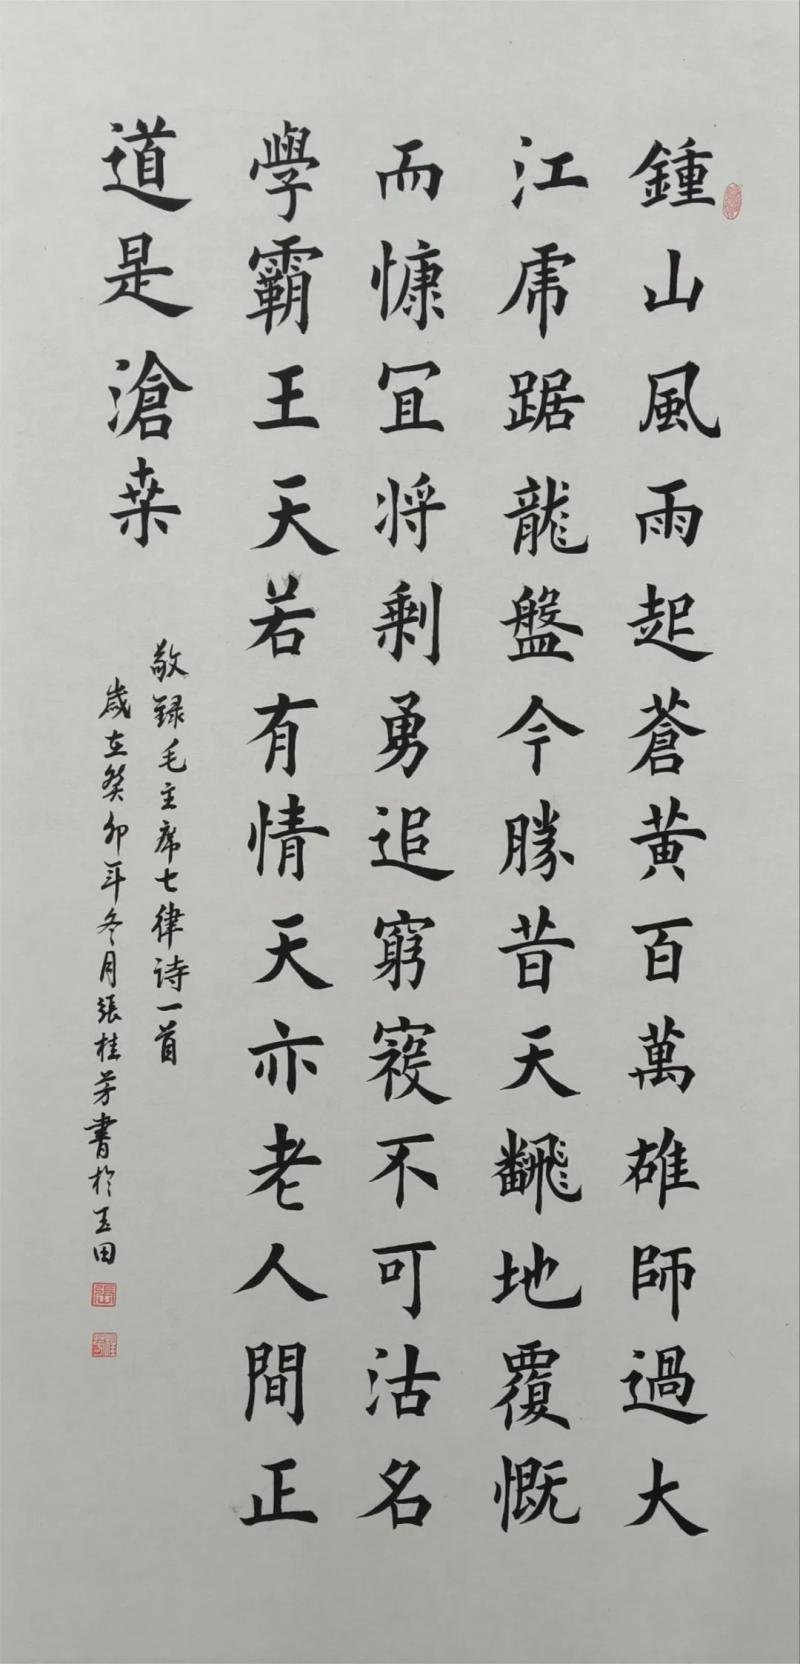 鍾山風雨起蒼黄百萬雄師過大
江虎踞龍盤今勝昔天飜地覆慨
而慷宜將剩勇追窮寇不可沽名
學霸王天若有情天亦老人間正
道是滄桑
敬録毛主席七律诗一首
歲在癸卯年冬月張桂芳書於玉田